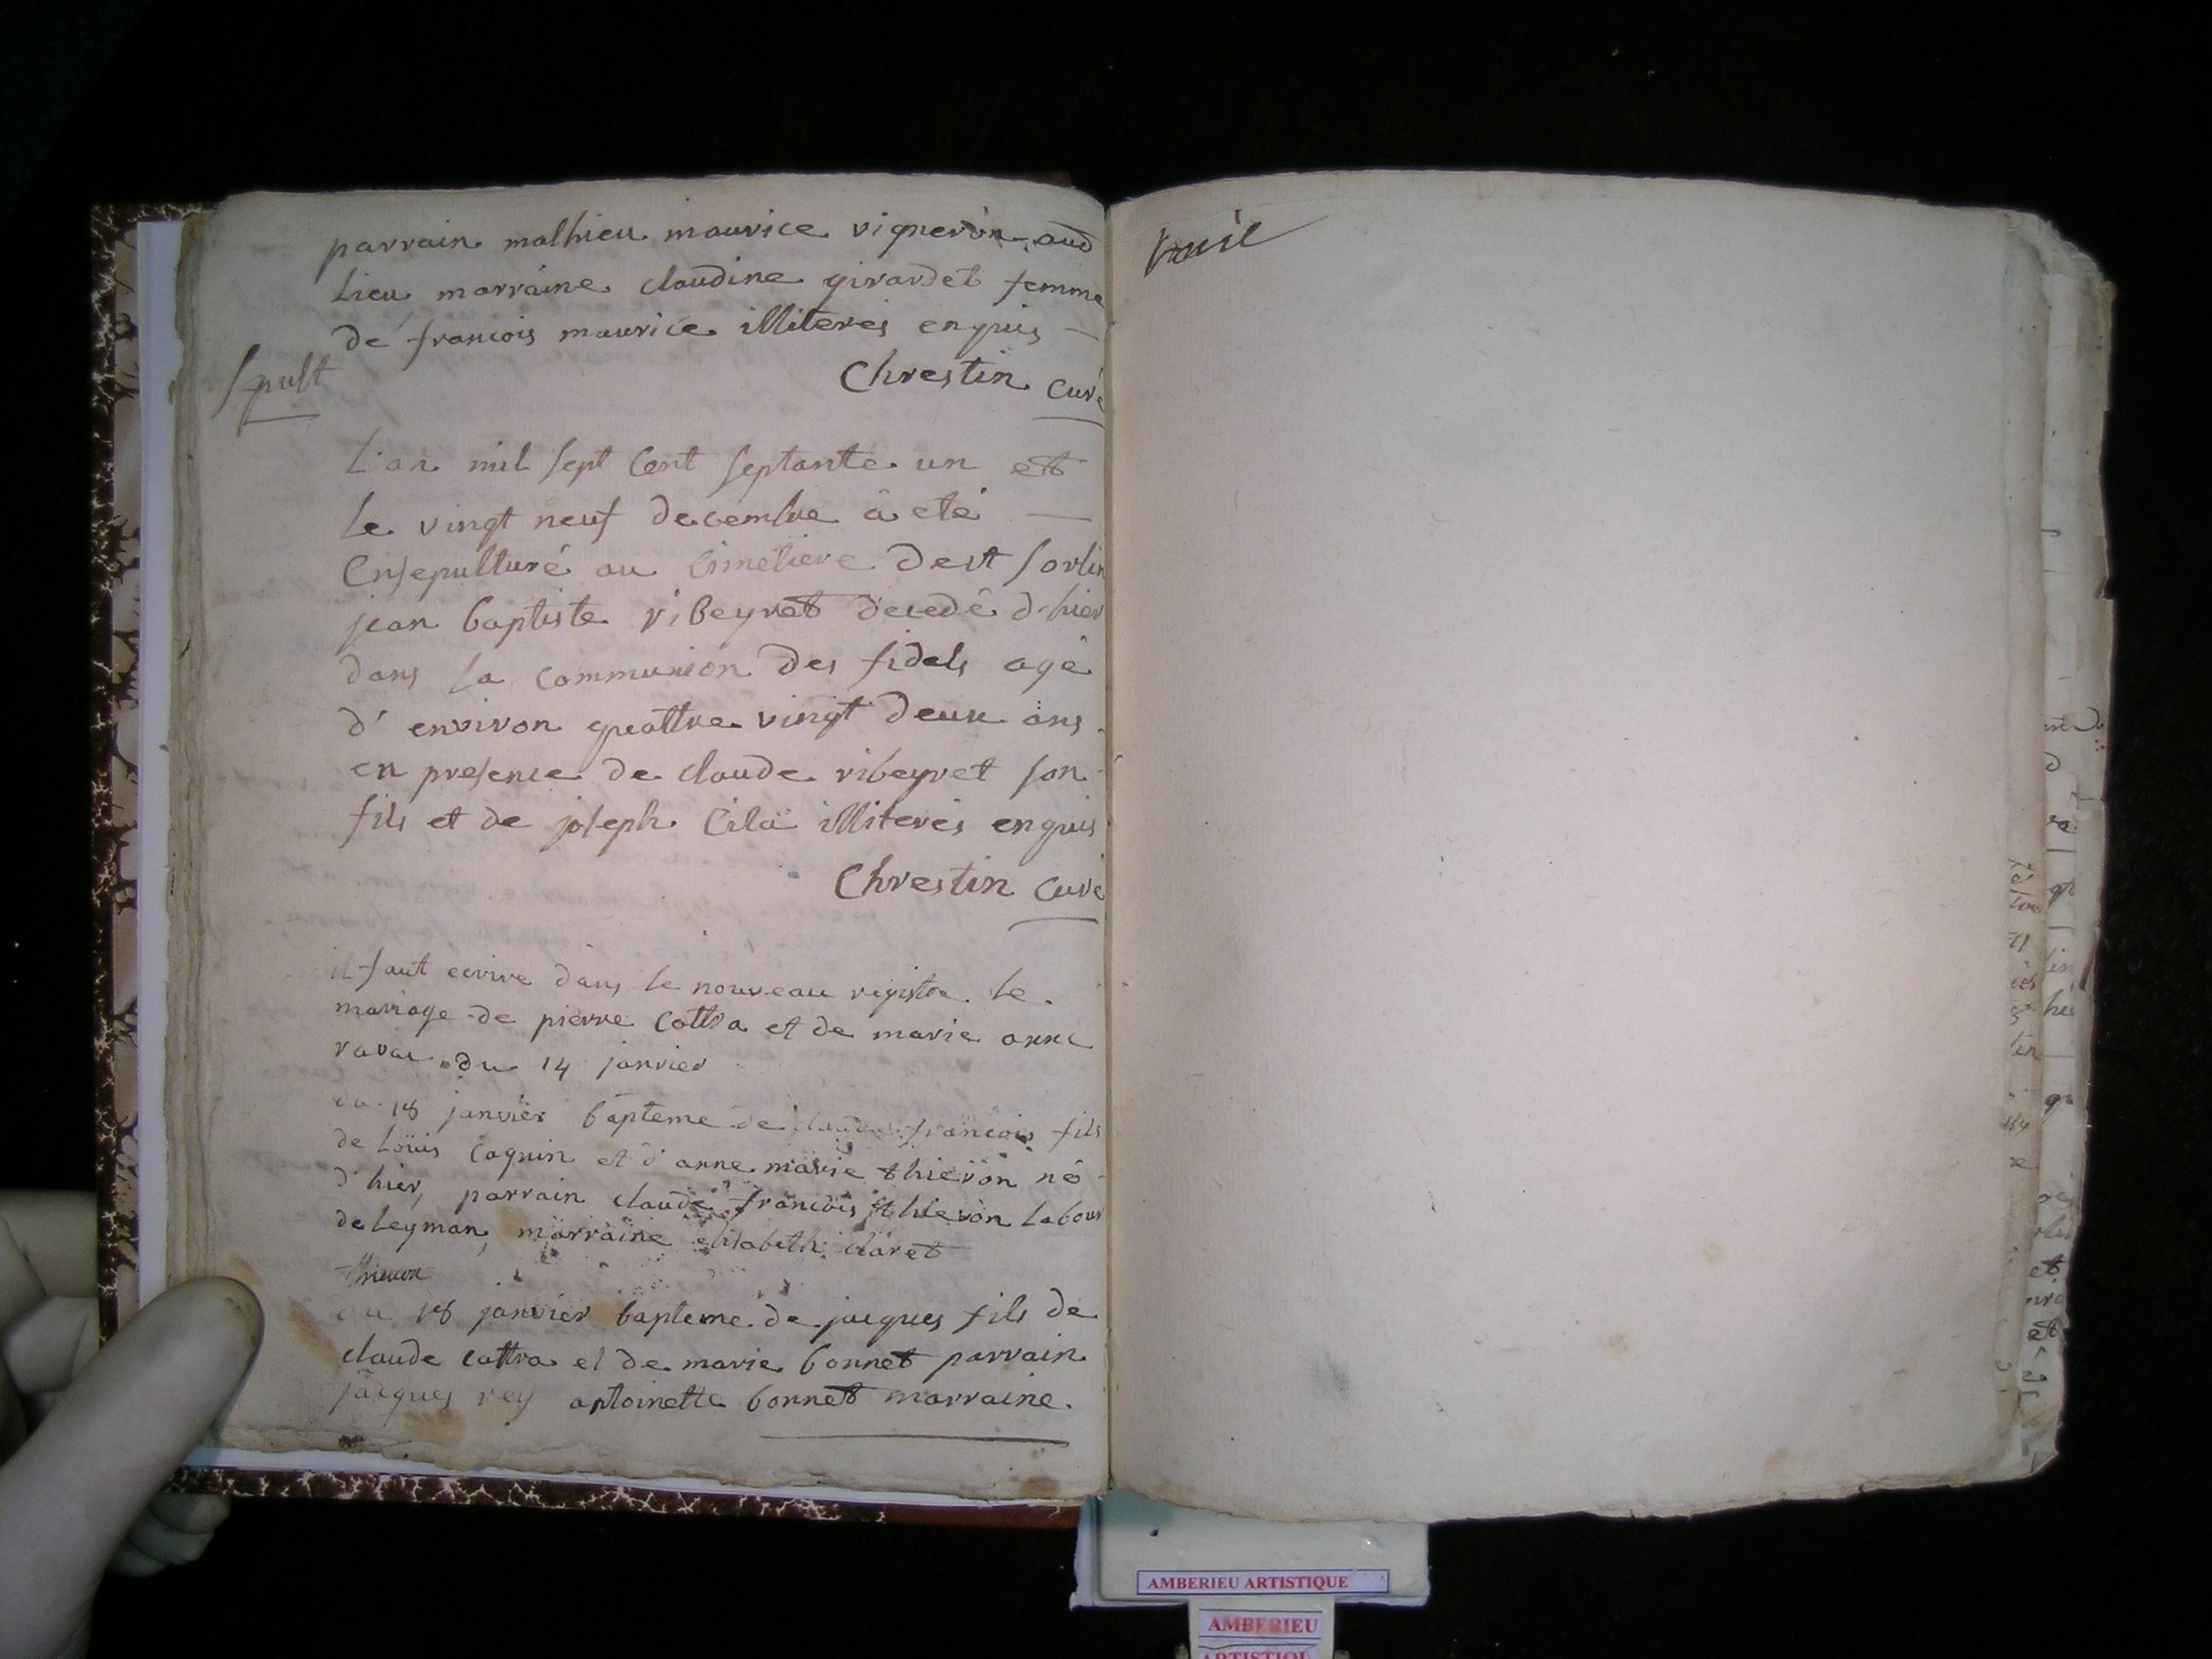 parrain mathieu maurice vigneron aud
lieu marraine claudine girardet femme
de francois maurice illiterés enquis
Sepult
Chrestin curé
L'an mil sept cent septante un et
le vingt neuf decembre a eté
Ensepulturé au cimetiere de st sorlin
jean baptiste ribeyret decedé d'hier
dans la communion des fidels agé
d'environ quattre vingt deux ans
en presence de claude ribeyret son
fils et de joseph Cila illiterés enquis
Chrestin curé
il faut ecrire dans le nouveau registre le
mariage de pierre cottra et de marie anne
du 14 janvier
du 18 janvier bapteme de claude francois fils
de Loüis Coquin et d'anne marie thievon né
d'hier, parrain claude francois thievon labour
de leyman, marraine elisabeth claret
thievon
du 18 janvier bapteme de jacques fils de
claude cottra et de marie bonnet parrain
jacques rey antoinette bonnet marraine.
AMBERIEU ARTISTIQUE
AMBERIEU
ARTISTIQUE